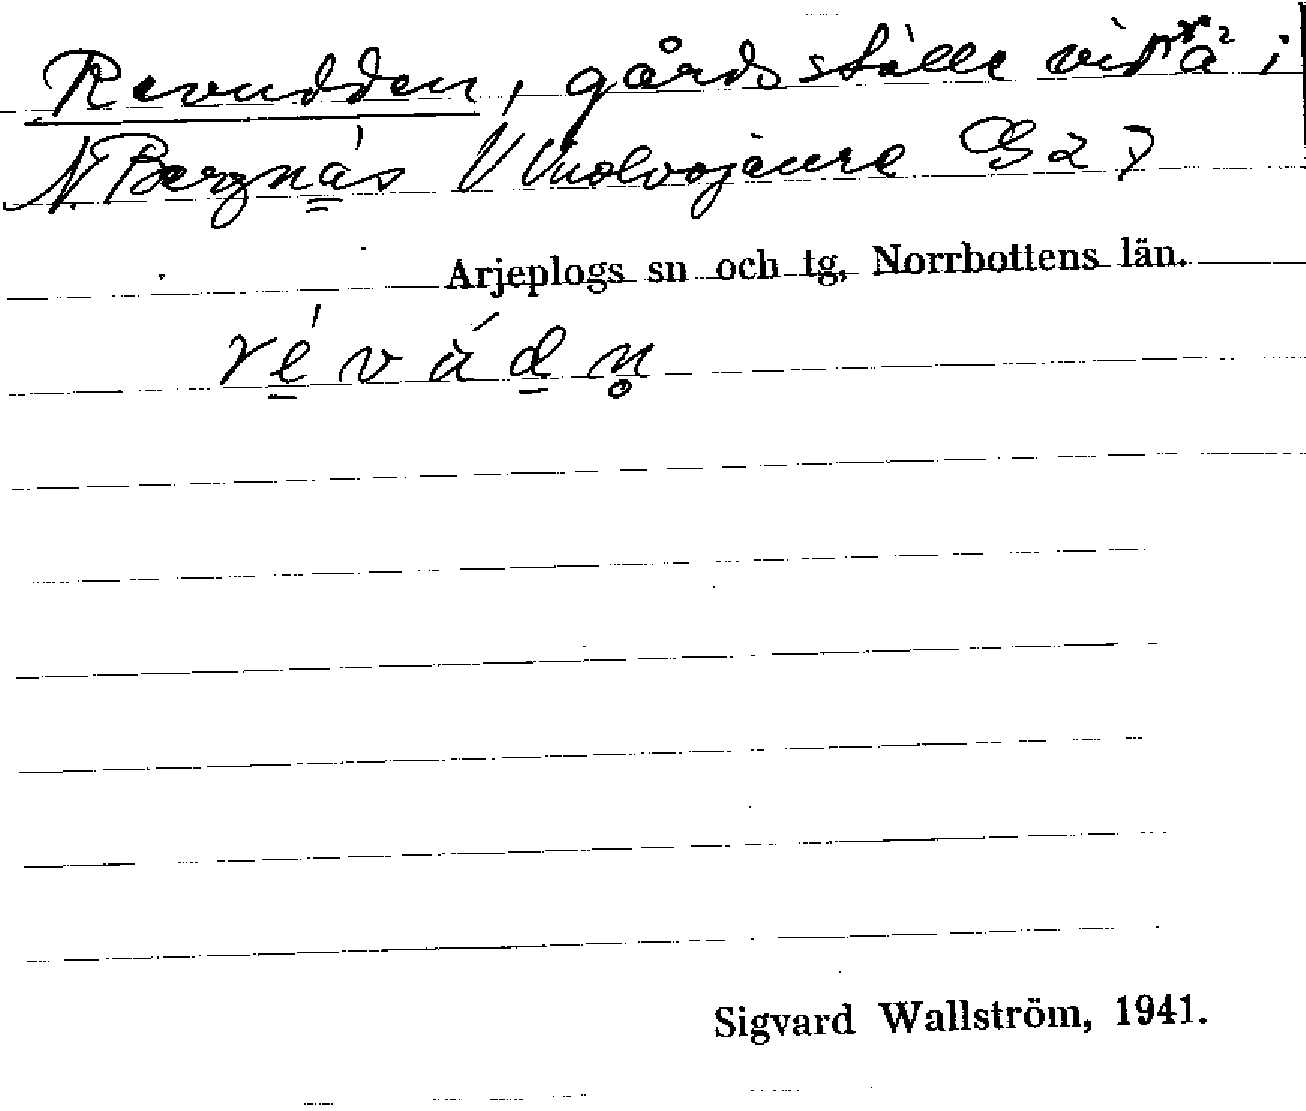 Revudden, gårdsställe vid å i
N. Bergnäs V Vuolvojaure G 2 7
Arjeplogs sn och tg, Norrbottens län.
r e v u d n
Sigvard Wallström, 1941.